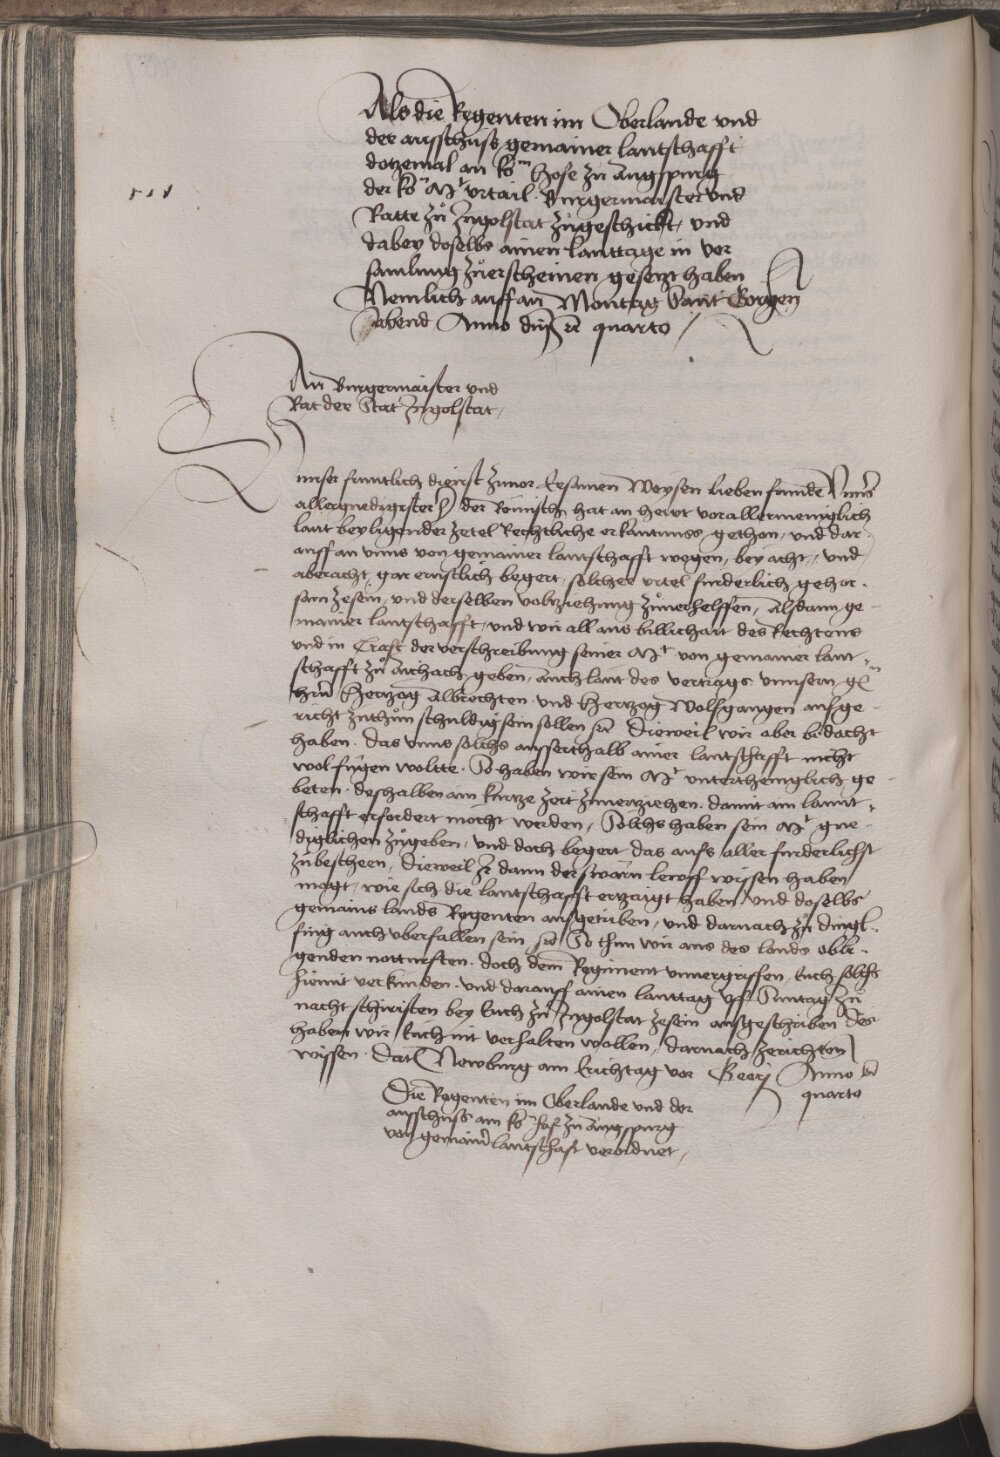 Als die Regenten im Oberlande und
der ausschuss gemainer lantschafft
dotzemal an ko^n Hofe zu Augspurg
der ko^n M^t urtail Burgermaister und
Ratte zů Ingolstat zůgeschickt, und
dabey doselbs ainen lanttage in ver
samlung zůerscheinen gesetzt haben
Nemlich auff an Montag Sant Gorgen
abend Anno dnj etc quarto /
An Burgermaister und
Rat der Stat Ingolstat,
Unser fruntlich dienst zuuor Ersamen Weysen lieben frunde Unns
allergnedigister h der Römisch hat an hewt vor allermeniglich
laut beyligender zetel Rechtliche erkantnuss gethon, und dar
auff an unns von gemainer lantschafft wegen, bey acht, und
aberacht, gar ernstlich begert, solcher urtel furderlich gehor
sam zesein, und derselben voltziehung zůuerhelffen, Alsdann ge
mainer lantschafft, und wir all aus billichait des Rechtens
und in Crafft der verschreibung seiner M^t von gemainer lant
schafft zů Aichach geben, auch laut des vertrags unnsern g^n
hrn Hertzog Albrechten und Hertzog Wolfgangen aufge
richt zuthůn schuldig sein sollen etc Dieweil wir aber bedacht
haben das unns solchs ausserthalb ainer lantschafft nicht
wol fügen woltte. So haben wir sein M^t unttertheniglich ge
beten. deshalben ain kurtze zeit zuuertziehen. damit ain lannt
schafft erfordert mocht werden, Solchs haben sein M^t gne
diglichen zůgeben, und doch begert das aufs aller furderlichst
zůbescheen, Dieweil Ir dann der swärn lewff wissen haben
mogt, wie sich die lantschafft ertzaigt haben und doselbs
gemains lands Regenten ausgetriben, und darnach zů Dingl
fing auch uberfallen sein etc So thun wir aus des lands obli
genden notturften. doch dem Regiment unuergriffen, Euch solchs
hiemit verkunden. und darauff ainen lanttag uf Suntag zů
nacht schiristen bey Euch zů Ingolstat zesein ausgeschriben Des
haben wir Euch nit verhalten wollen, darnach zerichten
wissen. Dat Newburg am Erichtag vor Georij Anno etc
quarto
Die Regenten im Oberlande und der
ausschuss am ko^n hof zu Augspurg
von gemainer lantschaft verordnet,